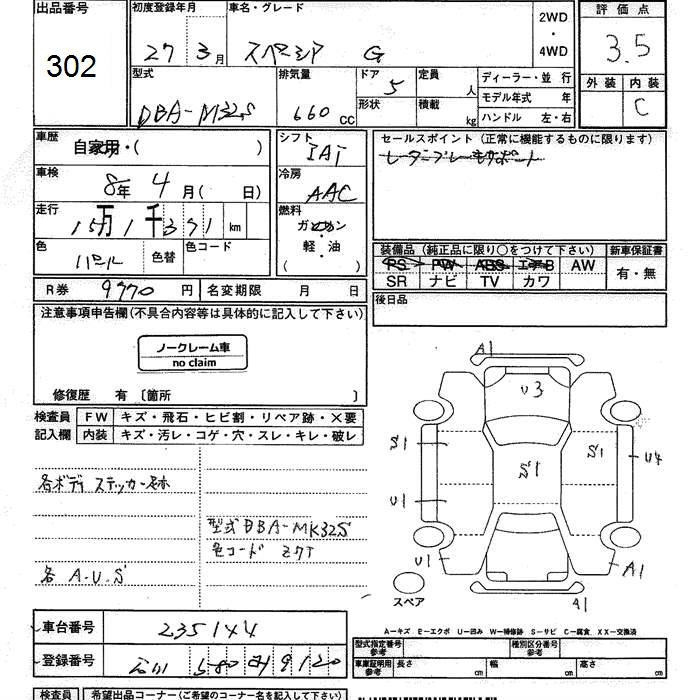 出品番号 初度登録年月 車名・グレード 2WD・4WD 評価点
302 27 3月 スペーシア G 3.5
型式 排気量 ドア 5 定員 人 ディーラー・並行 外装 内装
DBA-M32S 660 CC 形状 積載 kg モデル年式 年 C
ハンドル 左・右
車歴 自家用・( ) シフト IAT セールスポイント (正常に機能するものに限ります)
車検 8年 4月 ( 日) 冷房 AAC
走行 15万1千371 km 燃料 ガソリン・軽・油 ( )
色 パール 色替 色コード
装備品 (純正品に限り○をつけて下さい) 新車保証書
PS PW ABS エアB AW 有・無
SR ナビ TV カワ
R券 9770 円 名変期限 月 日 後日品
注意事項申告欄(不具合内容等は具体的に記入して下さい)
ノークレーム車
no claim
修復歴 有 〔箇所 〕
検査員 FW キズ・飛石・ヒビ割・リペア跡・×要
記入欄 内装 キズ・汚レ・コゲ・穴・スレ・キレ・破レ
各ボディ ステッカー跡
型式 DBA-MK32S
色コード Z7T
各 A.U.S
A1
U3
S1 S1 S1 U4
U1
U1 A1
A1
スペア
車台番号 235144
登録番号 石川 580 9120
A…キズ E…エクボ U…凹み W…補修跡 S…サビ C…腐食 XX…交換済
型式指定番号 参考 種別区分番号 参考
車庫証明用 参考 長さ cm 幅 cm 高さ cm
検査員 希望出品コーナー(ご希望のコーナー名を記入下さい)